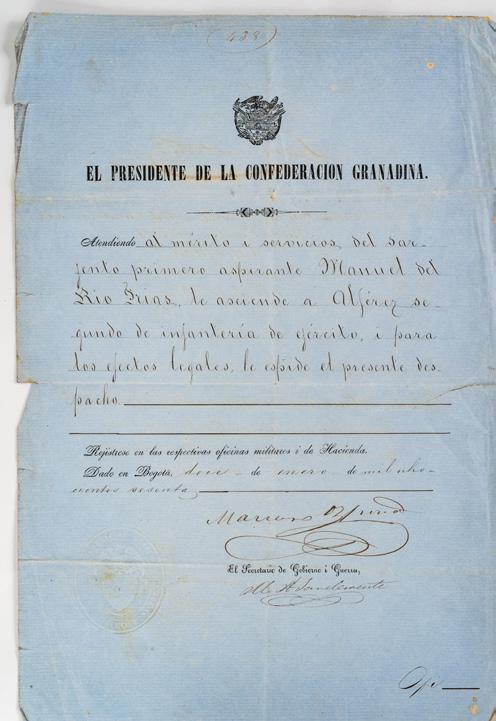 (438)
EL PRESIDENTE DE LA CONFEDERACION GRANADINA.
Atendiendo al mérito i servicios, del sar-
jento primero aspirante Manuel del
Rio Frias, le asciende a Alférez se-
gundo de infantería de ejército, i para
los efectos legales, le espide el presente des-
pacho
Rejístrese en las respectivas oficinas militares i de Hacienda.
Dado en Bogotá, doce de enero de mil ocho-
cientos sesenta
Mariano Ospina
El Secretario de Gobierno i Guerra,
M. A. Sanclemente